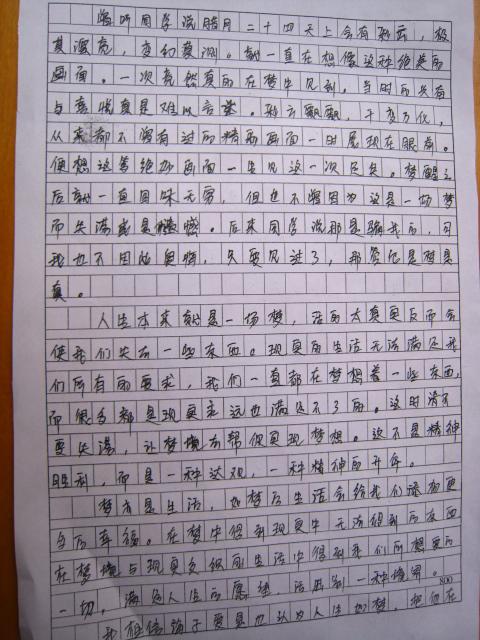 曾听同学说腊月二十四天上会有彩云，极
其漂亮，变幻莫测。就一直在想像这种绝美的
画面。一次竟然真的在梦中见到。当时的兴奋
与喜悦真是难以言望。彩云飘飘，千变万化，
从来都不曾有过的精丽画面一时展现在眼前。
便想这等绝妙画面一生见这一次足矣。梦醒之
后就一直回味无穷，但也不曾因为这是一场梦
而失落或是懊恼。后来同学说那是骗我的，可
我也不因此懊恼，只要见过了，那管它是梦是
真。
人生本来就是一场梦，活的太真实反而会
使我们失去一些东西。现实的生活无法满足我
们所有的要求，我们一直都在梦想着一些东西，
而很多都是现实永远也满足不了的。这时请不
要失落，让梦境去帮你实现梦想。这不是精神
胜利，而是一种达观，一种精神的升华。
梦亦是生活，如梦后生活会给我们添加更
多的幸福。在梦中得到现实中无法得到的东西
在梦境与现实交织的生活中得到我们所想要的
一切，满足人生的愿望，活出别一种境界。
800
我相信庄子要是也认为人生如梦，把他在